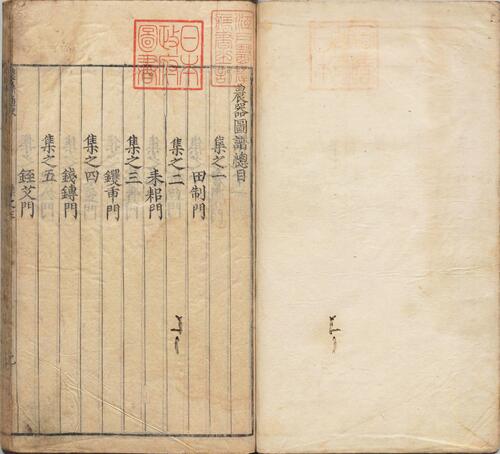 農器圖譜總目
集之一
田制門
集之二
耒耜門
集之三
钁臿門
集之四
錢鎛門
集之五
銍艾門
日本
政府
圖書